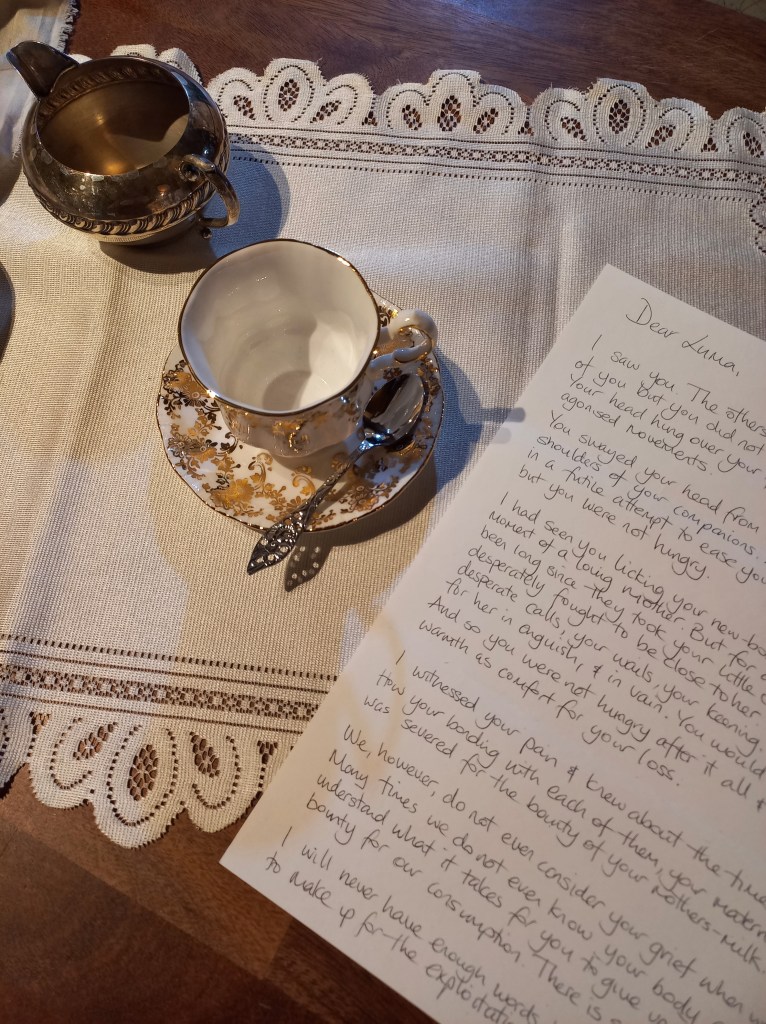 Dear Luma,
I saw you. The others
of you but you did not
Your head hung over your
agonised movements.
You swayed your head from
shoulders of your companions.
in a futile attempt to ease you
but you were not hungry.
I had seen you licking your new-bo
moment of a loving mother. But for a
been long since they took your little c
desperately fought to be close to her.
desperate calls, your wails, your keening.
for her in anguish, & in vain. You would
And so you were not hungry after it all &
warmth as comfort for your loss.
I witnessed your pain & knew about the time
How your bonding with each of them, your matern
was severed for the bounty of your mothers-milk.
We, however, do not even consider your grief when w
Many times we do not even know your body
understand what it takes for you to give us
bounty for our consumption. There is
I will never have enough words
to make up for the exploitatio